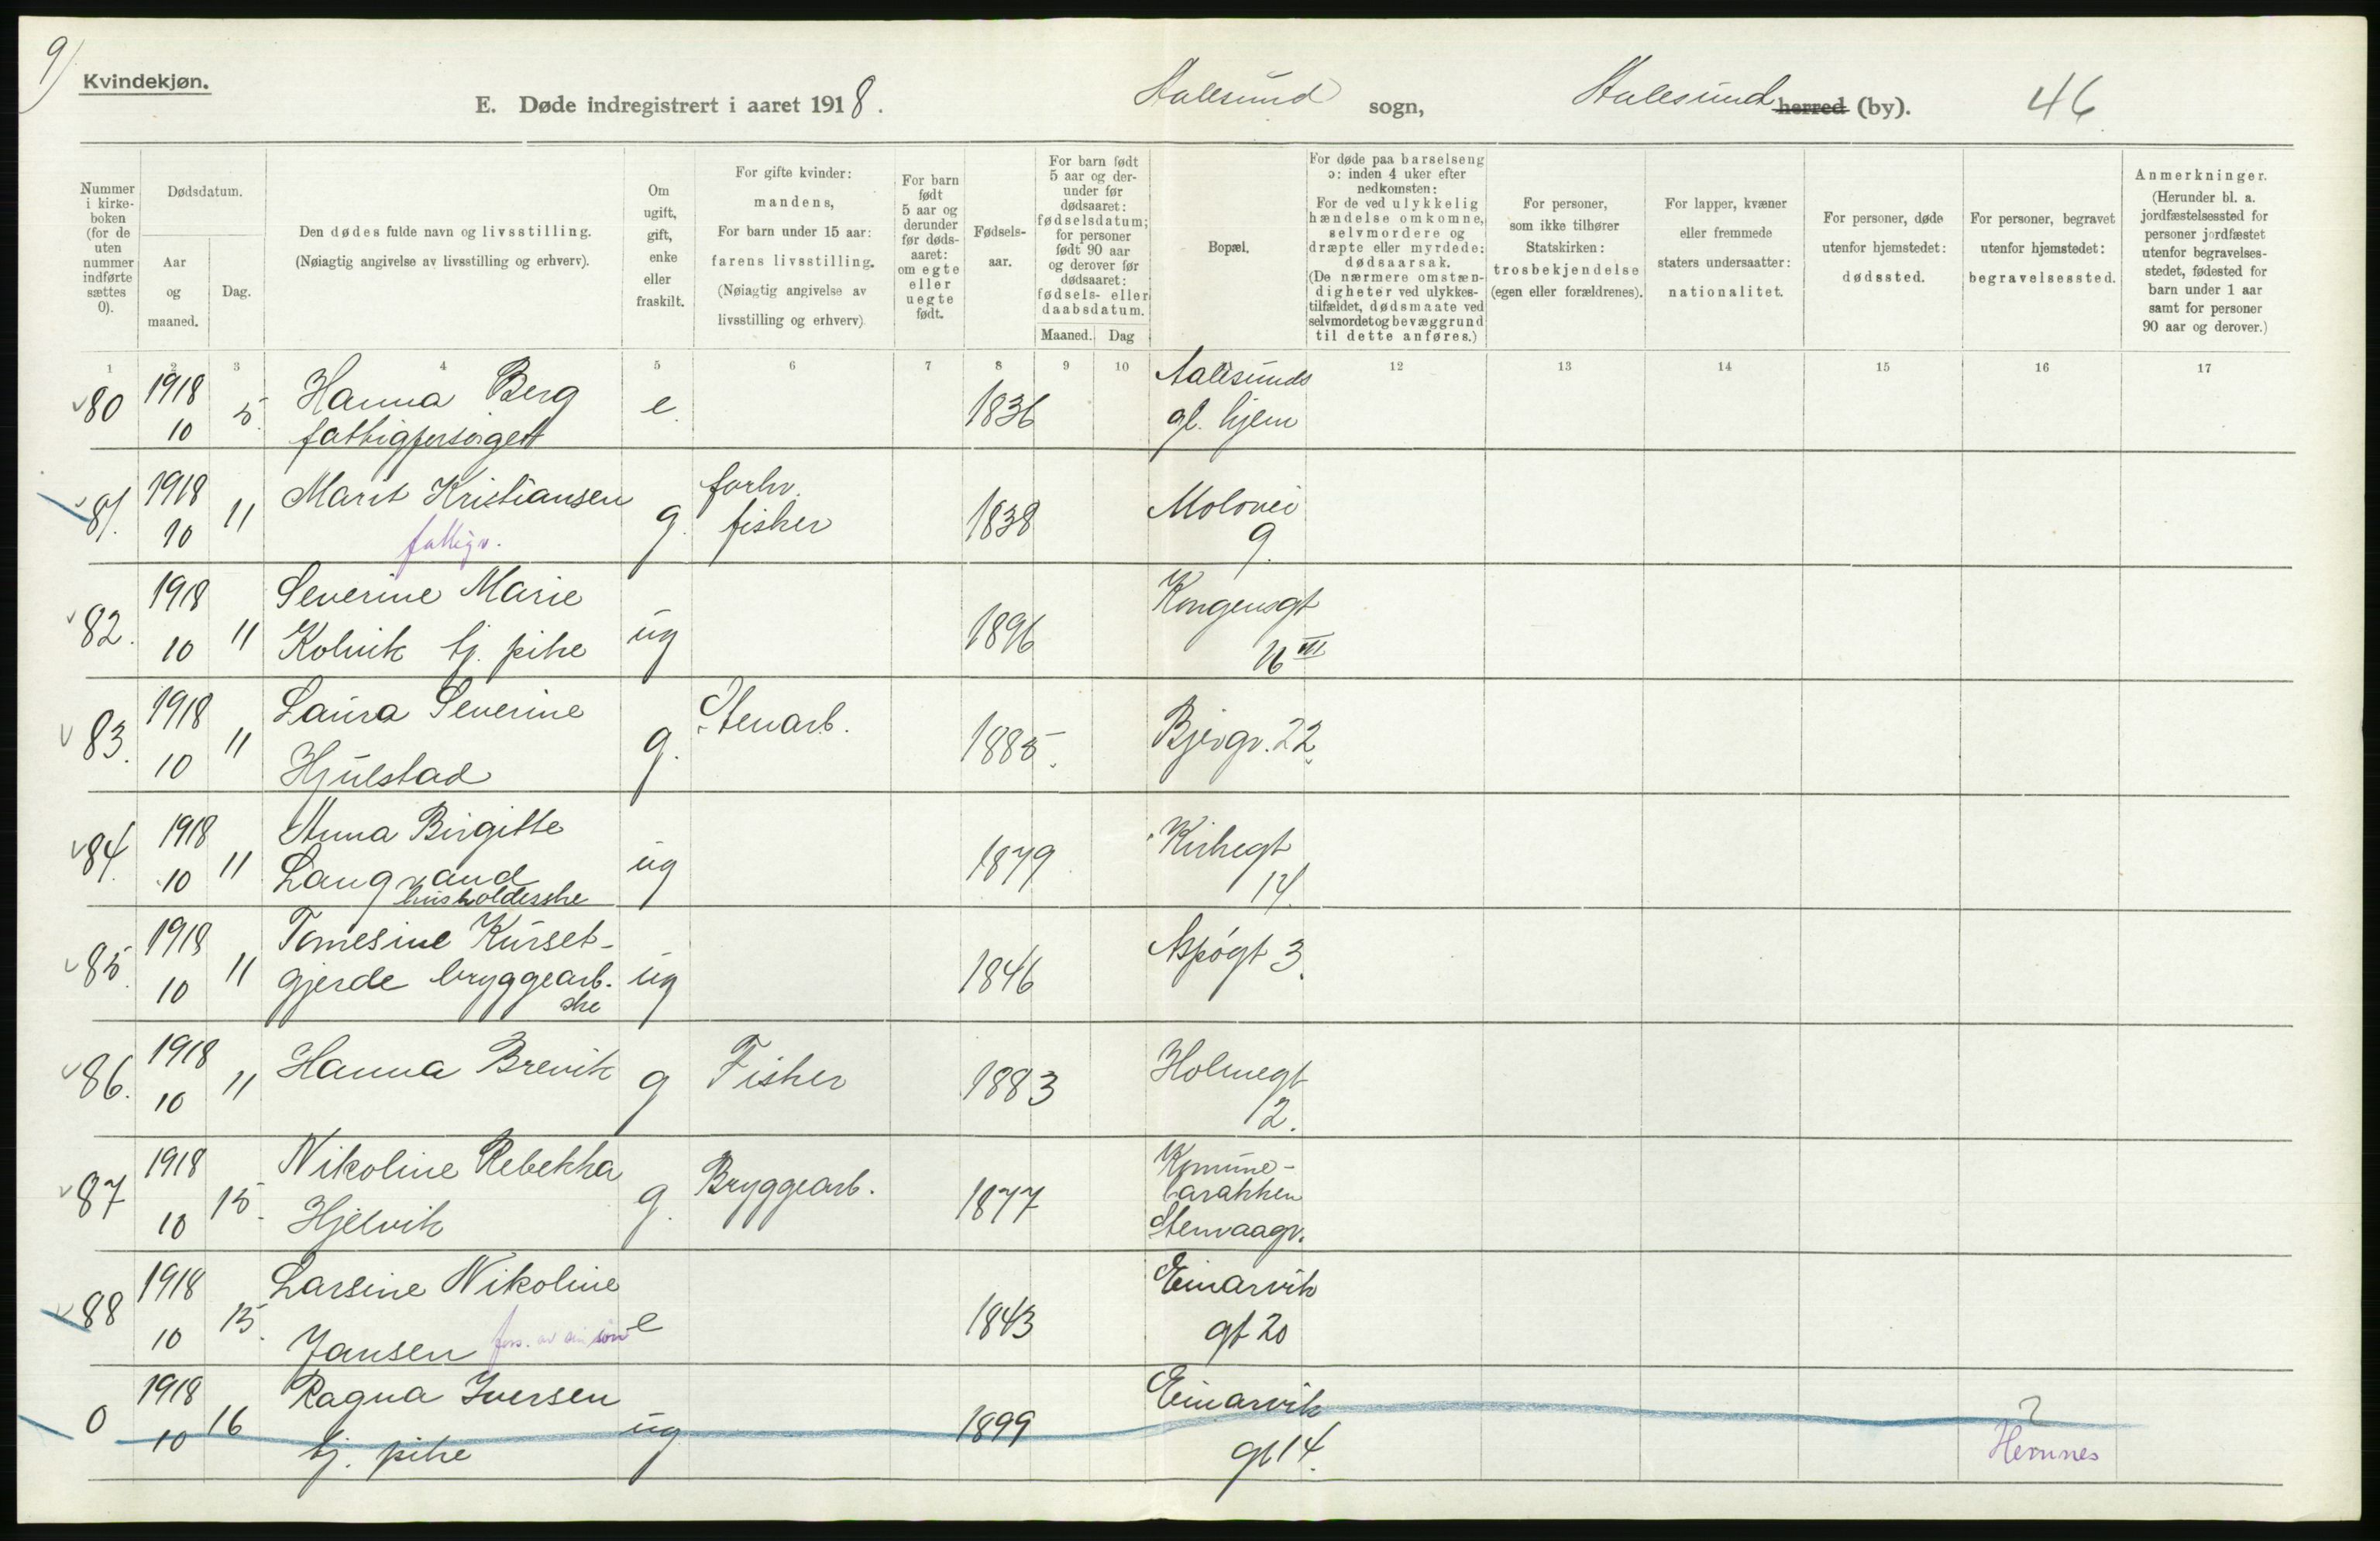 9)
Kvindekjøn.
E. Døde indregistrert i aaret 1918.
Aalesund sogn,
Aalesund herred (by).
46
Nummer i kirke- boken (for de uten nummer indførte sættes 0).
Dødsdatum.
Aar og maaned.
Dag.
Den dødes fulde navn og livsstilling.
(Nøiagtig angivelse av livsstilling og erhverv).
Om ugift, gift, enke eller fraskilt.
For gifte kvinder: mandens,
For barn under 15 aar: farens livsstilling.
(Nøiagtig angivelse av livsstilling og erhverv)
For barn født 5 aar og derunder før døds- aaret: om egte eller uegte født.
Fødsels- aar.
For barn født 5 aar og der- under før dødsaaret: fødselsdatum; for personer født 90 aar og derover før dødsaaret: fødsels- eller daabsdatum.
Maaned.
Dag
Bopæl.
For døde paa barselseng ɔ: inden 4 uker efter nedkomsten:
For de ved ulykkelig hændelse omkomne, selvmordere og dræpte eller myrdede: dødsaarsak.
(De nærmere omstæn- digheter ved ulykkes- tilfældet, dødsmaate ved selvmordet og bevæggrund til dette anføres.)
For personer, som ikke tilhører Statskirken: trosbekjendelse (egen eller forældrenes).
For lapper, kvæner eller fremmede staters undersaatter: nationalitet.
For personer, døde utenfor hjemstedet: dødssted.
For personer, begravet utenfor hjemstedet: begravelsessted.
Anmerkninger.
(Herunder bl. a. jordfæstelsessted for personer jordfæstet utenfor begravelses- stedet, fødested for barn under 1 aar samt for personer 90 aar og derover.)
1 2 3 4 5 6 7 8 9 10 12 13 14 15 16 17
80 1918 10 5. Hanna Berg e. 1836 Aalesunds
fattigforsørget gl. hjem
81. 1918 10 11 Marit Kristiansen g. forhv. fisker 1838 Molovei
fattigv. 9.
82. 1918 10 11 Severine Marie ug 1896 Kongensgt
Kolvik tj. pike 16 III
83. 1918 10 11 Laura Severine g. Stenarb. 1885. Bjergv. 22.
Hjulstad
84. 1918 10 11 Anna Birgitte ug 1879 Kirkegt
Langvand 14.
husholderske
85. 1918 10 11 Tomesine Kurset- ug 1846 Aspøgt 3.
gjerde bryggearb.
ske
86. 1918 10 11 Hanna Brevik g Fisker 1883 Holmegt
12.
87 1918 10 15. Nikoline Rebekka g. Bryggearb. 1877 Komune-
Hjelvik barakken
Stenvaagv.
88 1918 10 15. Larsine Nikoline e 1843 Einarvik
Jansen fors. av sin søn gt 20
0 1918 10 16 Ragna Iversen ug 1899 Einarvik ?
tj. pike gt 14. Hemnes